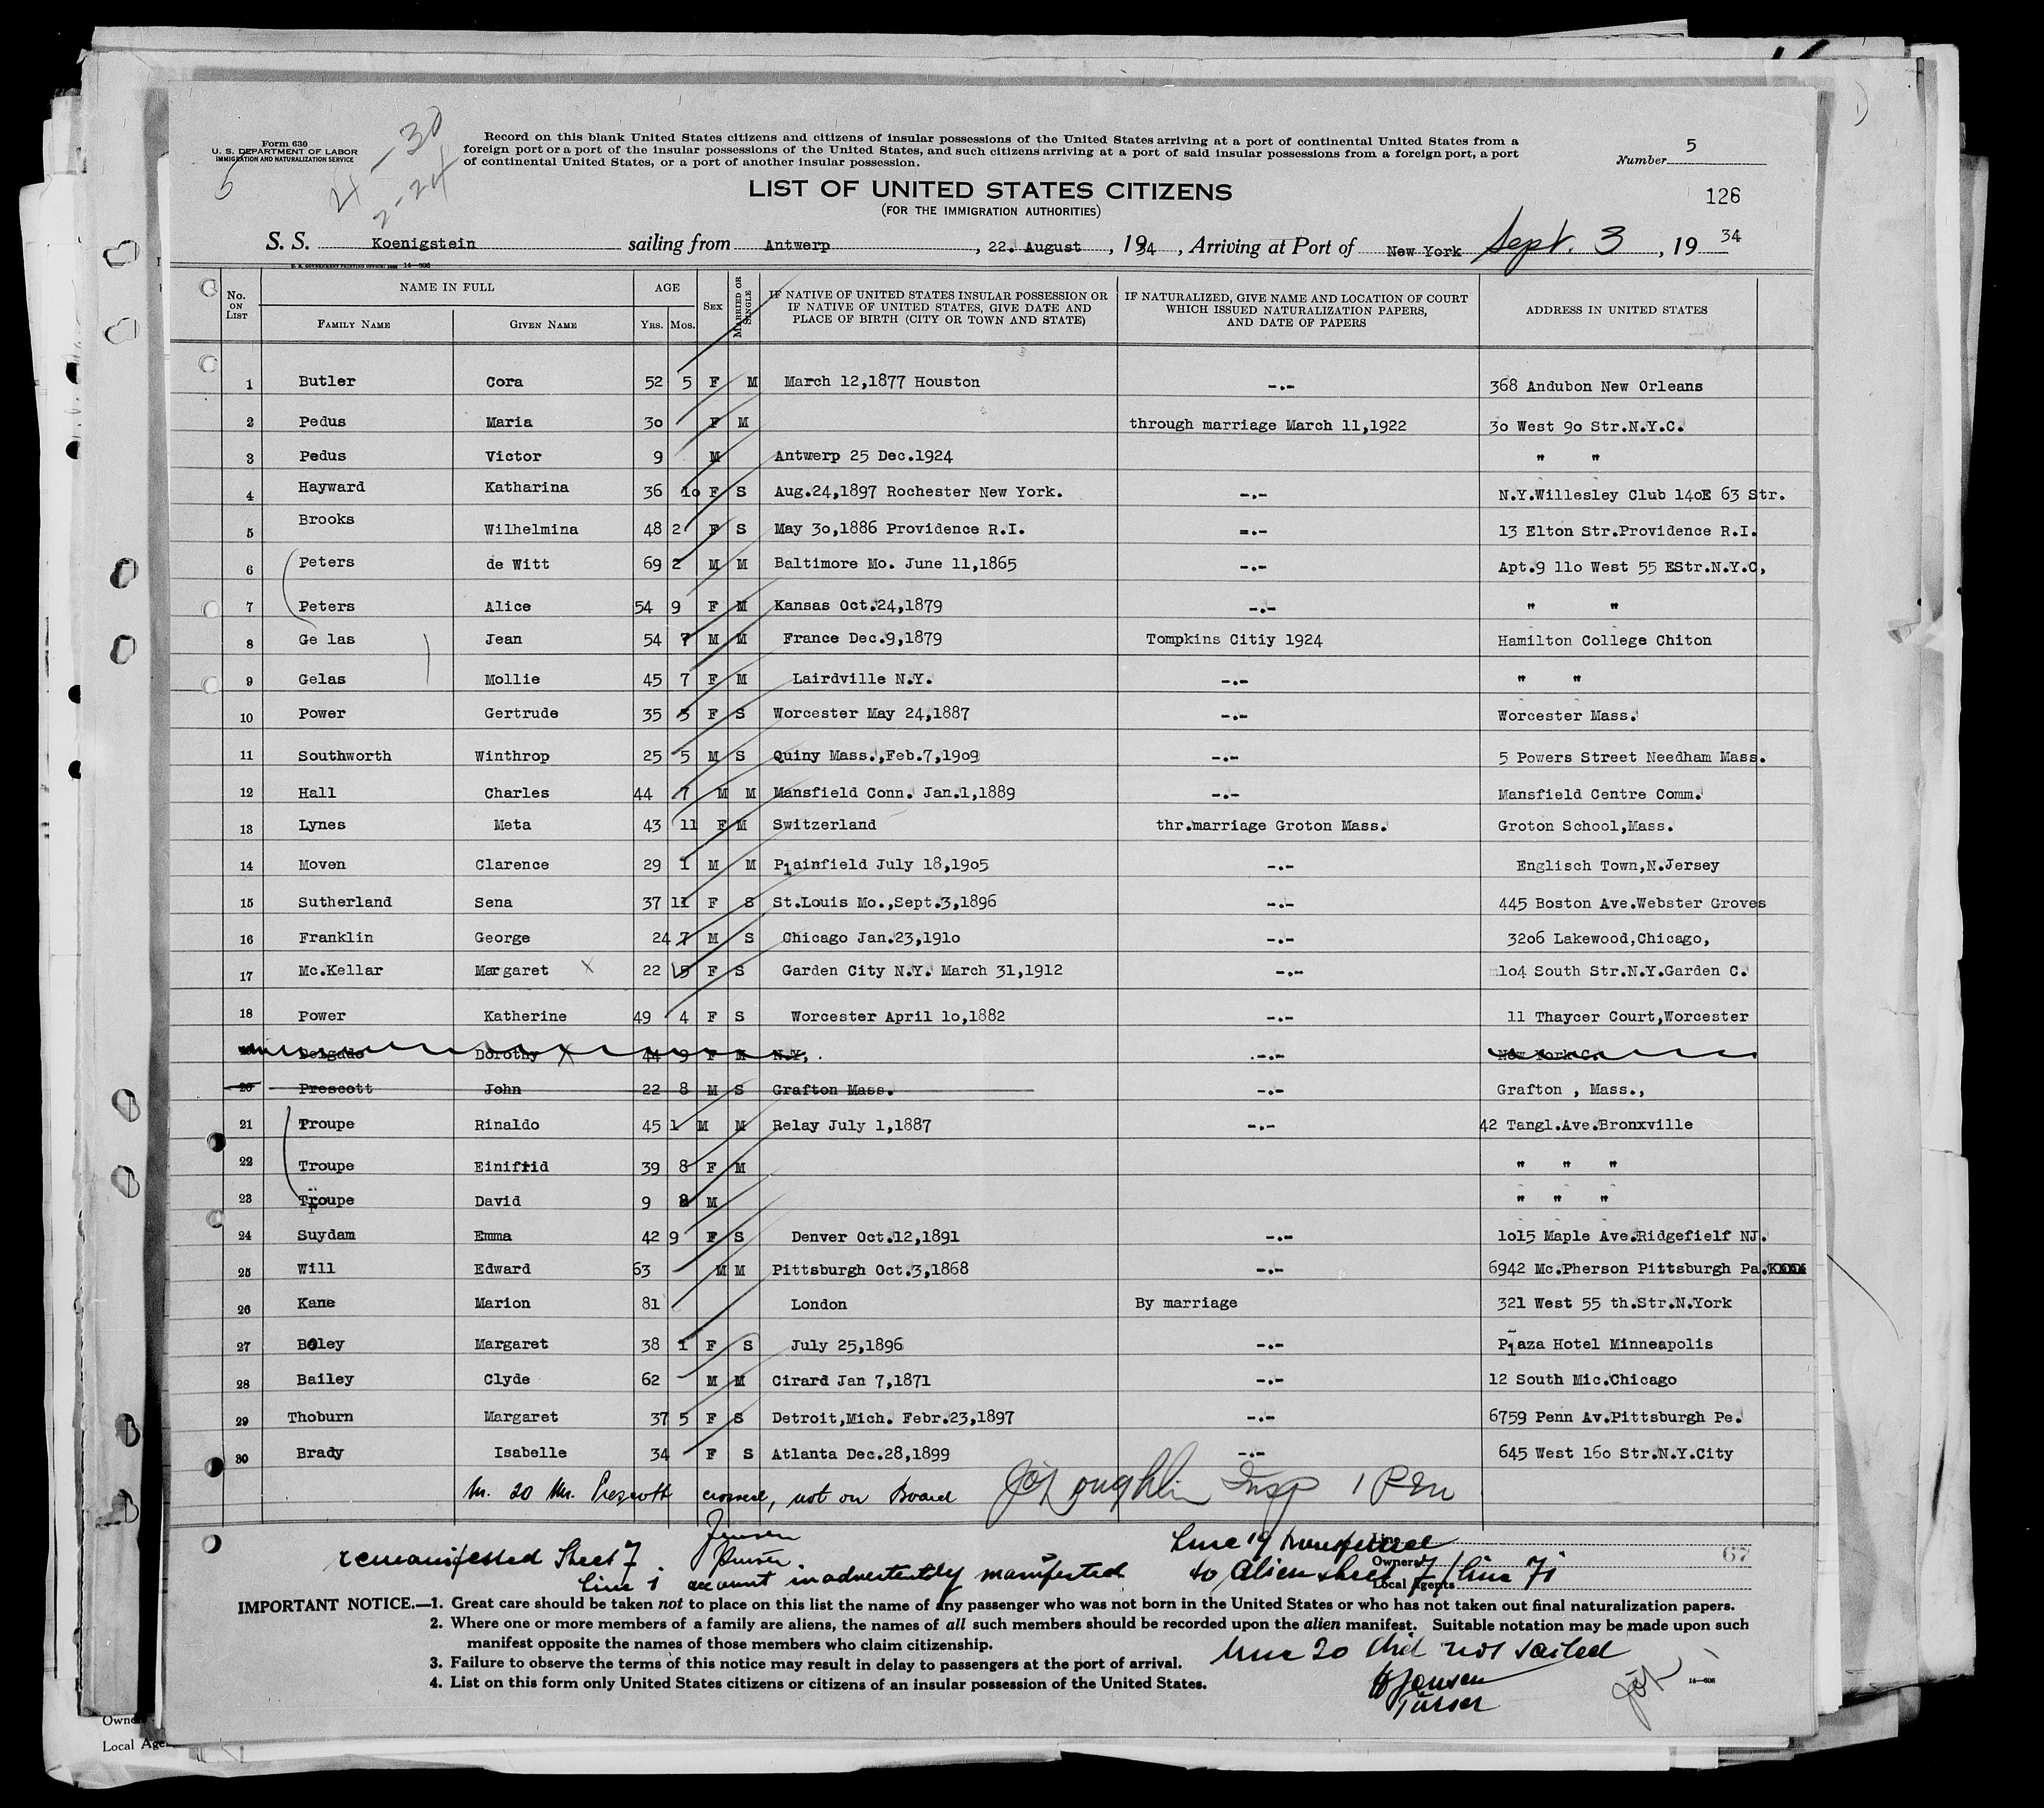 Form 630
U. S. DEPARTMENT OF LABOR
IMMIGRATION AND NATURALIZATION SERVICE
5
4-30
2-24
Record on this blank United States citizens and citizens of insular possessions of the United States arriving at a port of continental United States from a
foreign port or a port of the insular possessions of the United States, and such citizens arriving at a port of said insular possessions from a foreign port, a port
of continental United States, or a port of another insular possession.
Number 5
LIST OF UNITED STATES CITIZENS
126
(FOR THE IMMIGRATION AUTHORITIES)
S. S. Koenigstein sailing from Antwerp, 22. August, 1934, Arriving at Port of New York Sept. 3, 19 34
No. ON LIST NAME IN FULL AGE SEX MARRIED OR SINGLE IF NATIVE OF UNITED STATES INSULAR POSSESSION OR IF NATIVE OF UNITED STATES, GIVE DATE AND PLACE OF BIRTH (CITY OR TOWN AND STATE) IF NATURALIZED, GIVE NAME AND LOCATION OF COURT WHICH ISSUED NATURALIZATION PAPERS, AND DATE OF PAPERS ADDRESS IN UNITED STATES
FAMILY NAME GIVEN NAME YRS. MOS.
1 Butler Cora 52 5 F M March 12,1877 Houston -.- 368 Andubon New Orleans
2 Pedus Maria 30 F M through marriage March 11,1922 30 West 90 Str.N.Y.C.
3 Pedus Victor 9 M Antwerp 25 Dec.1924 " "
4 Hayward Katharina 36 10 F S Aug.24,1897 Rochester New York. -.- N.Y.Willesley Club 140E 63 Str.
5 Brooks Wilhelmina 48 2 F S May 30,1886 Providence R.I. -.- 13 Elton Str.Providence R.I.
6 Peters de Witt 69 2 M M Baltimore Mo. June 11,1865 -.- Apt.9 110 West 55 EStr.N.Y.C,
7 Peters Alice 54 9 F M Kansas Oct.24,1879 -.- " "
8 Ge las Jean 54 7 M M France Dec.9,1879 Tompkins Citiy 1924 Hamilton College Chiton
9 Gelas Mollie 45 7 F M Lairdville N.Y. -.- " "
10 Power Gertrude 35 3 F S Worcester May 24,1887 -.- Worcester Mass.
11 Southworth Winthrop 25 5 M S Quiny Mass.,Feb.7,1909 -.- 5 Powers Street Needham Mass.
12 Hall Charles 44 7 M M Mansfield Conn. Jan.1,1889 -.- Mansfield Centre Comm.
13 Lynes Meta 43 11 F M Switzerland thr.marriage Groton Mass. Groton School,Mass.
14 Moven Clarence 29 1 M M Plainfield July 18,1905 -.- Englisch Town,N.Jersey
15 Sutherland Sena 37 11 F S St.Louis Mo.,Sept.3,1896 -.- 445 Boston Ave.Webster Groves
16 Franklin George 24 7 M S Chicago Jan.23,1910 -.- 3206 Lakewood,Chicago,
17 Mc.Kellar Margaret X 22 5 F S Garden City N.Y. March 31,1912 -.- 104 South Str.N.Y.Garden C.
18 Power Katherine 49 4 F S Worcester April 10,1882 -.- 11 Thaycer Court,Worcester
Delgado Dorothy X 44 9 F M N.Y. . -.- New York C.
20 Prescott John 22 8 M S Grafton Mass. -.- Grafton , Mass.,
21 Troupe Rinaldo 45 1 M M Relay July 1,1887 -.- 42 Tangl.Ave.Bronxville
22 Troupe Einifrid 39 8 F M " " "
23 Troupe David 9 8 M " " "
24 Suydam Emma 42 9 F S Denver Oct.12,1891 -.- 1015 Maple Ave.Ridgefielf NJ.
25 Will Edward 63 M M Pittsburgh Oct.3,1868 -.- 6942 Mc.Pherson Pittsburgh Pa.
26 Kane Marion 81 London By marriage 321 West 55 th.Str.N.York
27 Boley Margaret 38 1 F S July 25,1896 -.- Plaza Hotel Minneapolis
28 Bailey Clyde 62 M M Cirard Jan 7,1871 -.- 12 South Mic.Chicago
29 Thoburn Margaret 37 5 F S Detroit,Mich. Febr.23,1897 -.- 6759 Penn Av.Pittsburgh Pe.
30 Brady Isabelle 34 F S Atlanta Dec.28,1899 -.- 645 West 160 Str.N.Y.City
N. 20 Mr. Prescott crossed, not on Board JO'Loughlin Insp
Jensen
Purser
remanifested Sheet 7
line i account inadvertently manifested
Line 19 transferred
to Alien sheet 7/line 7i
Line
Owners
Local Agents
67
IMPORTANT NOTICE.—1. Great care should be taken not to place on this list the name of any passenger who was not born in the United States or who has not taken out final naturalization papers.
2. Where one or more members of a family are aliens, the names of all such members should be recorded upon the alien manifest. Suitable notation may be made upon such
manifest opposite the names of those members who claim citizenship.
3. Failure to observe the terms of this notice may result in delay to passengers at the port of arrival.
4. List on this form only United States citizens or citizens of an insular possession of the United States.
Line 20 did not sailed
Jensen
Purser
14—606
Owners
Local Age